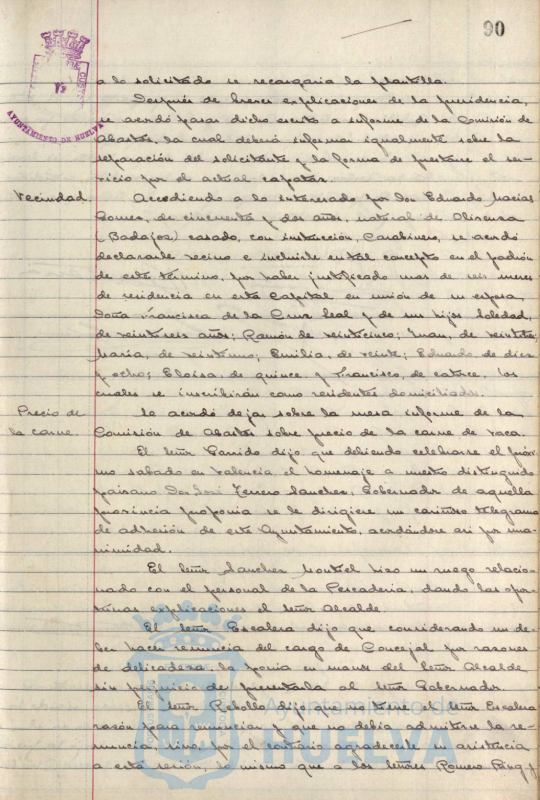 90
AYUNTAMIENTO DE HUELVA
a lo solicitado se recargaria la plantilla.
Después de breves explicaciones de la presidencia,
se acordó pasar dicho escrito a informe de la Comisión de
Abastos, la cual deberá informar igualmente sobre la
separación del solicitante y la forma de prestarse el ser-
vicio por el actual capataz.
Vecindad.
Accediendo a lo interesado por Don Eduardo Macias
Gomez, de cincuenta y dos años, natural de Olivenza
(Badajoz) casado, con instrucción, Carabinero, se acordó
declararle vecino e incluirle en tal concepto en el padrón
de este término, por haber justificado mas de seis meses
de residencia en esta Capital en unión de su esposa
Doña Francisca de la Cruz Leal y de sus hijos Soledad,
de veintiseis años; Ramón de veinticinco; Juan, de veintitres;
Maria, de veintiuno; Emilia, de veinte; Eduardo de diez
y ocho; Eloisa, de quince y Francisco, de catorce, los
cuales se inscribirán como residentes domiciliados.
Precio de
la carne.
Se acordó dejar sobre la mesa informe de la
Comisión de Abastos sobre precio de la carne de vaca.
El Señor Garrido dijo que debiendo celebrarse el próxi-
mo sabado en Valencia el homenaje a nuestro distinguido
paisano Don José Terrero Sanchez, Gobernador de aquella
provincia proponia se le dirigiese un cariñoso telegrama
de adhesión de este Ayuntamiento, acordándose asi por una-
nimidad.
El Señor Sanchez Montiel hizo un ruego relacio-
nado con el personal de la Pescaderia, dando las opor-
tunas explicaciones el Señor Alcalde.
El Señor Escalera dijo que considerando un de-
ber hacer renuncia del cargo de Concejal por razones
de delicadeza, la ponia en manos del Señor Alcalde
sin perjuicio de presentarla al Señor Gobernador.
El Señor Rebollo dijo que no tiene el Señor Escalera
razón para renunciar y que no debia admitirse la re-
nuncia, sino por el contrario agradecerle su asistencia
a esta sesión, lo mismo que a los Señores Romero
Ayuntamiento de
HUELVA